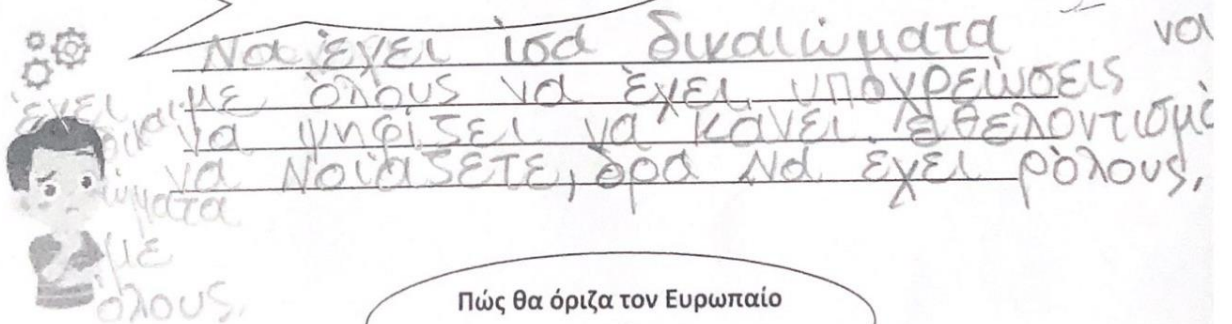 Να έχει ίσα δικαιώματα να
με όλους να έχει υποχρεώσεις
να ψηφίζει να κάνει εθελοντισμό
να Νοιάζετε, δρα Να έχει ρόλους,
έχει
δικαι
ώματα
με
όλους.
Πώς θα όριζα τον Ευρωπαίο